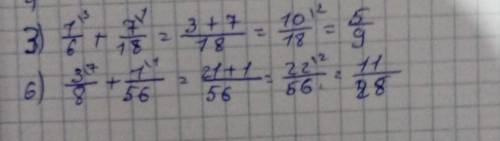 3) 1\3/6 + 7\1/18 = 3+7/18 = 10\2/18 = 5/9
6) 3\7/8 + 1\1/56 = 21+1/56 = 22\2/56 = 11/28